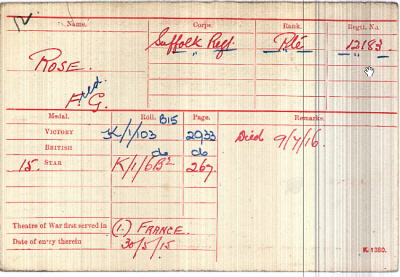 Name. Corps. Rank. Regtl. No.
Suffolk Regt. Pte 12183.
" " "
ROSE.
Fred.
F. G.
Medal. Roll. Page. Remarks.
B15
VICTORY K/1/103 2933 Died 9/7/16.
BRITISH do do
15. STAR K/1/6B2 267.
Theatre of War first served in (1.) FRANCE.
Date of entry therein 30/5/15
K. 1380.